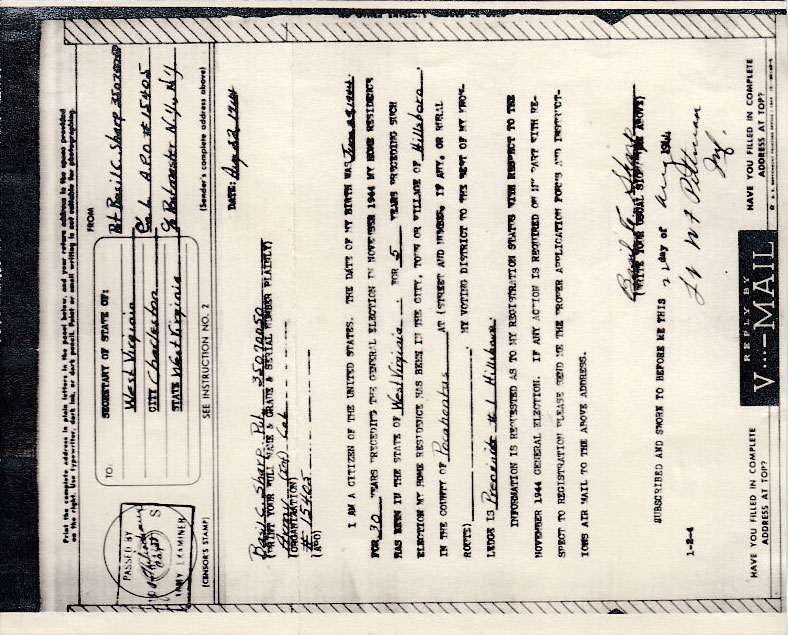 Print the complete address in plain letters in the panel below, and your return address in the space provided
on the right. Use typewriter, dark ink, or dark pencil. Faint or small writing is not suitable for photographing.
PASSED BY
S
ARMY EXAMINER
(CENSOR'S STAMP)
TO:
SECRETARY OF STATE OF:
West Virginia
CITY Charleston
STATE West Virginia
SEE INSTRUCTION NO. 2
FROM
Pvt Basil C. Sharp 35070050
Co. L A.P.O. #15405
% Postmaster N.Y., N.Y.
(Sender's complete address above)
DATE: Aug 22, 1944
Basil C. Sharp Pvt. 35070050
(PRINT YOUR FULL NAME & GRADE & SERIAL NUMBER PLAINLY)
Army Co. L
(ORGANIZATION)
# 15405
(APO)
I AM A CITIZEN OF THE UNITED STATES. THE DATE OF MY BIRTH WAS June
FOR 30 YEARS PRECEDING THE GENERAL ELECTION IN NOVEMBER 1944 MY HOME RESIDENCE
HAS BEEN IN THE STATE OF West Virginia. FOR 5 YEARS PRECEDING SUCH
ELECTION MY HOME RESIDENCE HAS BEEN IN THE CITY, TOWN OR VILLAGE OF Hillsboro.
IN THE COUNTY OF Pocahontas AT (STREET AND NUMBER, IF ANY, OR RURAL
ROUTE) MY VOTING DISTRICT TO THE BEST OF MY KNOW-
LEDGE IS Precinct #1 Hillsboro.
INFORMATION IS REQUESTED AS TO MY REGISTRATION STATUS WITH RESPECT TO THE
NOVEMBER 1944 GENERAL ELECTION. IF ANY ACTION IS REQUIRED ON MY PART WITH RE-
SPECT TO REGISTRATION PLEASE SEND ME THE PROPER APPLICATION FORMS AND INSTRUCT-
IONS AIR MAIL TO THE ABOVE ADDRESS.
Basil C. Sharp
(WRITE YOUR USUAL SIGNATURE ABOVE)
SUBSCRIBED AND SWORN TO BEFORE ME THIS day of Aug 1944
Lt Pittman
Inf.
1-2-4
HAVE YOU FILLED IN COMPLETE
ADDRESS AT TOP?
REPLY BY
V···—MAIL
HAVE YOU FILLED IN COMPLETE
ADDRESS AT TOP?